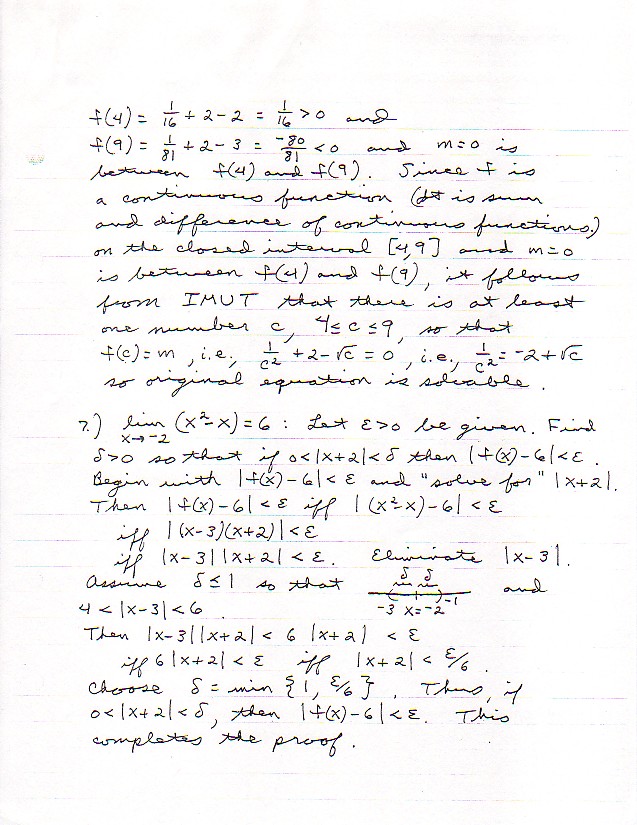 f(4) = 1/16 + 2 - 2 = 1/16 > 0 and
f(9) = 1/81 + 2 - 3 = -80/81 < 0 and m=0 is
between f(4) and f(9). Since f is
a continuous function (It is sum
and difference of continuous functions.)
on the closed interval [4,9] and m=0
is between f(4) and f(9), it follows
from IMVT that there is at least
one number c, 4≤c≤9, so that
f(c)=m, i.e., 1/c² + 2 - √c = 0, i.e., 1/c² = -2 + √c
so original equation is solvable.
7.) lim x→-2 (x²-x) = 6 : Let ε>0 be given. Find
δ>0 so that if 0<|x+2|<δ then |f(x)-6|<ε.
Begin with |f(x)-6|<ε and "solve for" |x+2|.
Then |f(x)-6|<ε iff |(x²-x)-6|<ε
iff |(x-3)(x+2)|<ε
iff |x-3||x+2|<ε. Eliminate |x-3|.
Assume δ≤1 so that δ δ -3 x=-2 -1 and
4<|x-3|<6
Then |x-3||x+2| < 6|x+2| < ε
iff 6|x+2|<ε iff |x+2|<ε/6.
Choose δ = min {1, ε/6}. Thus, if
0<|x+2|<δ, then |f(x)-6|<ε. This
completes the proof.